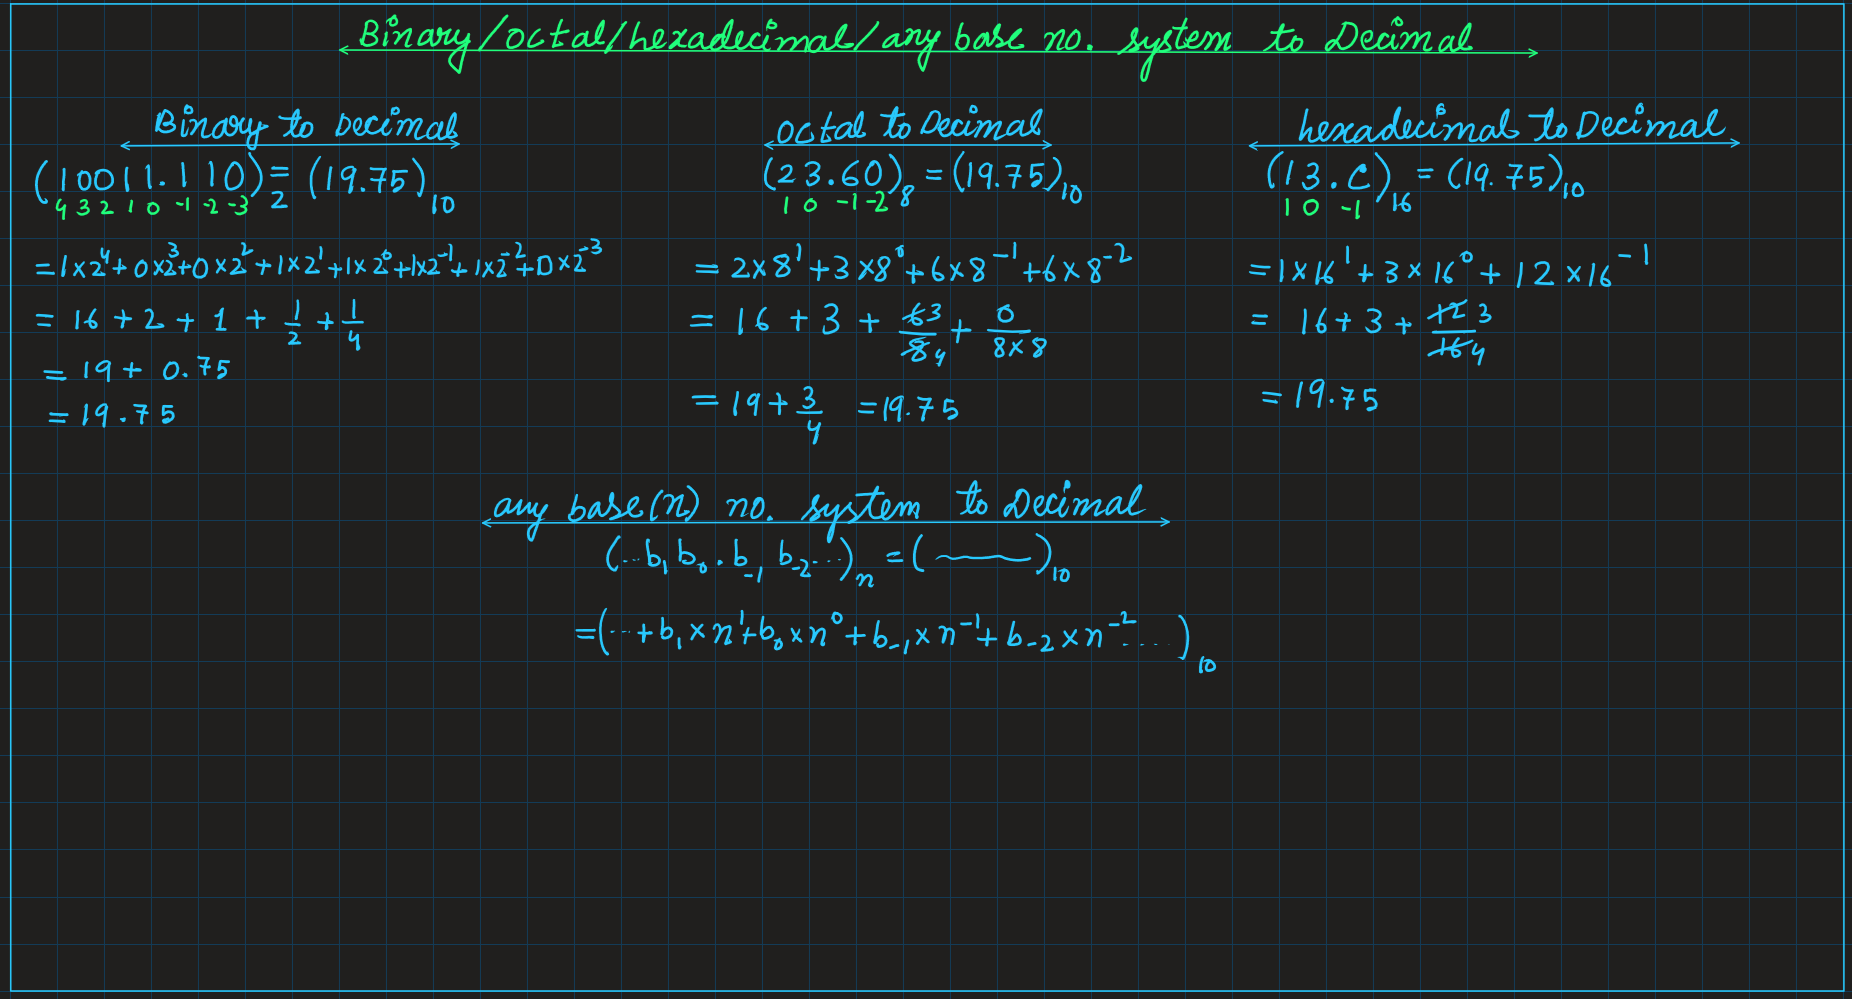 Binary/octal/hexadecimal/any base no. system to Decimal
Binary to Decimal
(10011.110)₂ = (19.75)₁₀
4 3 2 1 0 -1 -2 -3
= 1×2⁴ + 0×2³ + 0×2² + 1×2¹ + 1×2⁰ + 1×2⁻¹ + 1×2⁻² + 0×2⁻³
= 16 + 2 + 1 + 1/2 + 1/4
= 19 + 0.75
= 19.75
octal to Decimal
(23.60)₈ = (19.75)₁₀
1 0 -1 -2
= 2×8¹ + 3×8⁰ + 6×8⁻¹ + 6×8⁻²
= 16 + 3 + 6 3/8 4 + 0/8×8
= 19 + 3/4 = 19.75
hexadecimal to Decimal
(13.C)₁₆ = (19.75)₁₀
1 0 -1
= 1×16¹ + 3×16⁰ + 12×16⁻¹
= 16 + 3 + 12 3/16 4
= 19.75
any base(n) no. system to Decimal
(...b₁ b₀ . b₋₁ b₋₂ ...)ₙ = ( — )₁₀
= (... + b₁×n¹ + b₀×n⁰ + b₋₁×n⁻¹ + b₋₂×n⁻² ....)₁₀